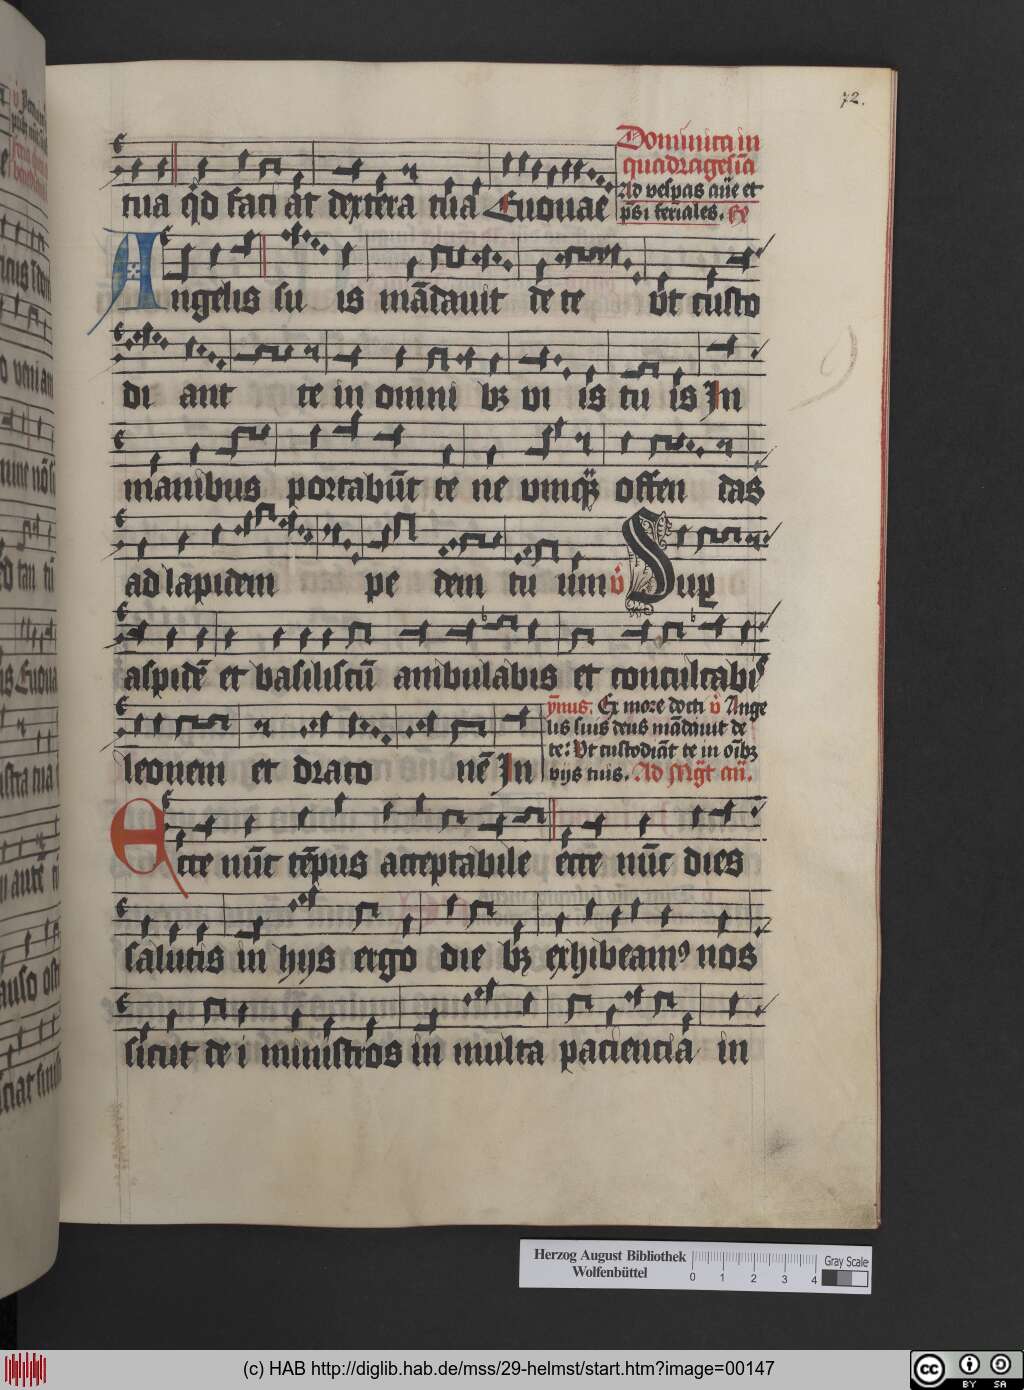 72.
Dominica in
quadragesīa
Ad vesp̄as an̄e et
p̄s i feriales. R̄
tua q̇d faci at dextera tua Euouae
Angelis su is mādauit de te vt custo
di ant te in omni bꝫ vi is tu is In
manibus portabūt te ne vmqꝫ offen das
ad lapidem pe dem tu um v̇ Suꝑ
aspidē et basiliscū ambulabis et conculcabis
leonem et draco nē In
ȳnus. Ex more docti v̇ Ange
lis suis deus mādauit de
te: Vt custodiāt te in oībꝫ
vijs tuis. Ad Mḡt an̄.
Ecce nūc tēpus acceptabile ecce nūc dies
salutis in hijs ergo die bꝫ exhibeamꝰ nos
sicut de i ministros in multa paciencia in
Herzog August Bibliothek
Wolfenbüttel
0 1 2 3 4
Gray Scale
(c) HAB http://diglib.hab.de/mss/29-helmst/start.htm?image=00147
cc BY SA